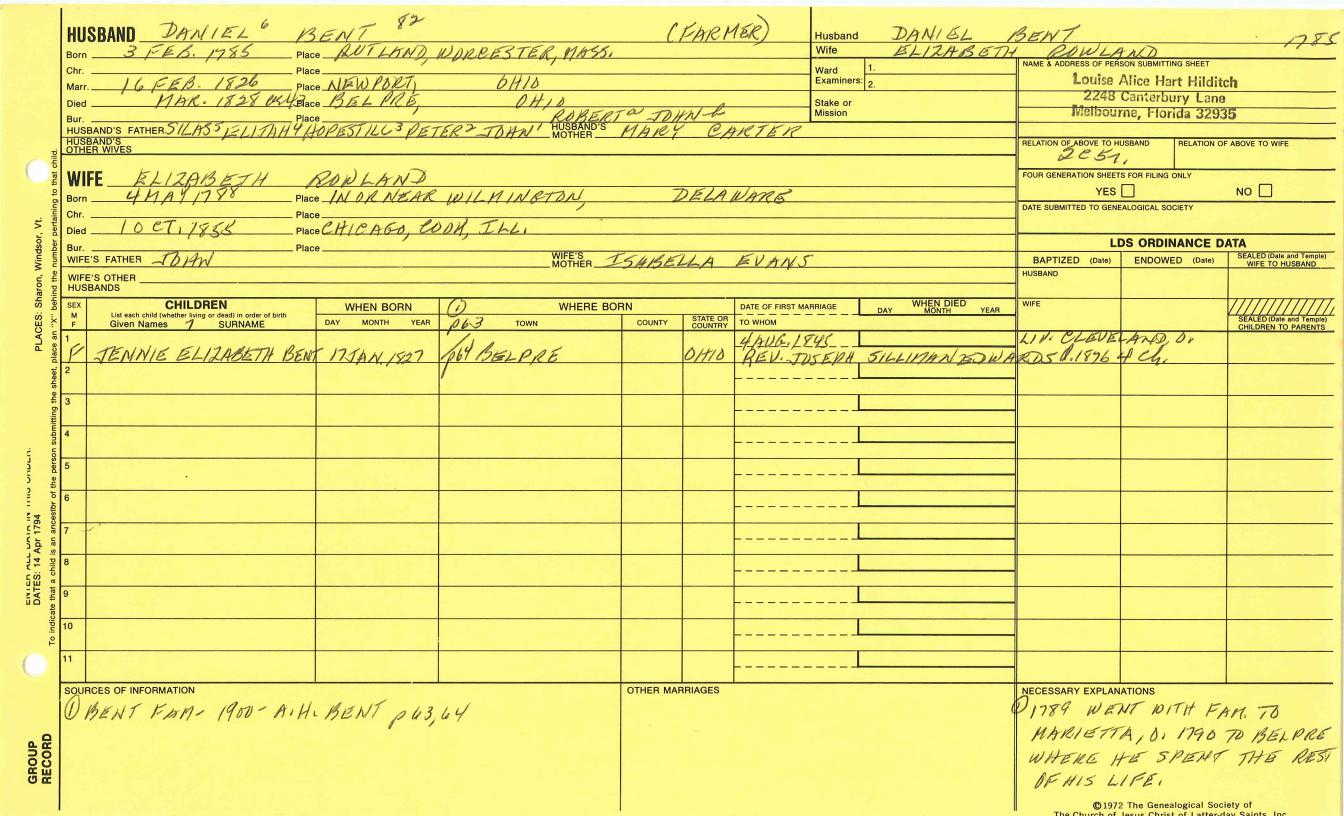 HUSBAND DANIEL 6 BENT 82 (FARMER)
Born 3 FEB. 1785 Place RUTLAND, WORCESTER, MASS.
Chr. Place
Marr. 16 FEB. 1826 Place NEWPORT, OHIO
Died MAR. 1828 Place BELPRE, OHIO
Bur. Place ROBERT JOHN
HUSBAND'S FATHER SILAS 5 ELIJAH 4 HOPESTILL 3 PETER 2 JOHN 1 HUSBAND'S MOTHER MARY CARTER
HUSBAND'S OTHER WIVES
WIFE ELIZABETH ROWLAND
Born 4 MAY 1788 Place IN OR NEAR WILMINGTON, DELAWARE
Chr. Place
Died 1 OCT. 1855 Place CHICAGO, COOK, ILL.
Bur. Place
WIFE'S FATHER JOHN WIFE'S MOTHER ISABELLA EVANS
WIFE'S OTHER HUSBANDS
Husband DANIEL BENT 1785
Wife ELIZABETH ROWLAND
Ward Examiners: 1.
2.
Stake or Mission
NAME & ADDRESS OF PERSON SUBMITTING SHEET
Louise Alice Hart Hilditch
2248 Canterbury Lane
Melbourne, Florida 32935
RELATION OF ABOVE TO HUSBAND RELATION OF ABOVE TO WIFE
FOUR GENERATION SHEETS FOR FILING ONLY
YES NO
DATE SUBMITTED TO GENEALOGICAL SOCIETY
LDS ORDINANCE DATA
BAPTIZED (Date) ENDOWED (Date) SEALED (Date and Temple) WIFE TO HUSBAND
HUSBAND
WIFE
SEALED (Date and Temple) CHILDREN TO PARENTS
SEX M F
CHILDREN
List each child (whether living or dead) in order of birth
Given Names SURNAME
WHEN BORN
DAY MONTH YEAR
① WHERE BORN
p63 TOWN COUNTY STATE OR COUNTRY
DATE OF FIRST MARRIAGE
TO WHOM
WHEN DIED
DAY MONTH YEAR
1 4 AUG. 1845 LIV. CLEVELAND, O.
F JENNIE ELIZABETH BENT 17 JAN. 1827 p64 BELPRE OHIO REV. JOSEPH SILLIMAN EDWARDS d. 1876 4 Ch.
2
3
4
5
6
7
8
9
10
11
SOURCES OF INFORMATION
① BENT FAM- 1900- A.H. BENT p63,64
OTHER MARRIAGES
NECESSARY EXPLANATIONS
① 1789 WENT WITH FAM. TO
MARIETTA, O. 1790 TO BELPRE
WHERE HE SPENT THE REST
OF HIS LIFE.
©1972 The Genealogical Society of
The Church of Jesus Christ of Latter-day Saints, Inc.
PLACES: Sharon, Windsor, Vt.
To indicate that a child is an ancestor of the person submitting the sheet, place an "X" behind the number pertaining to that child.
ENTER ALL DATA IN THIS ORDER:
DATES: 14 Apr 1794
GROUP RECORD